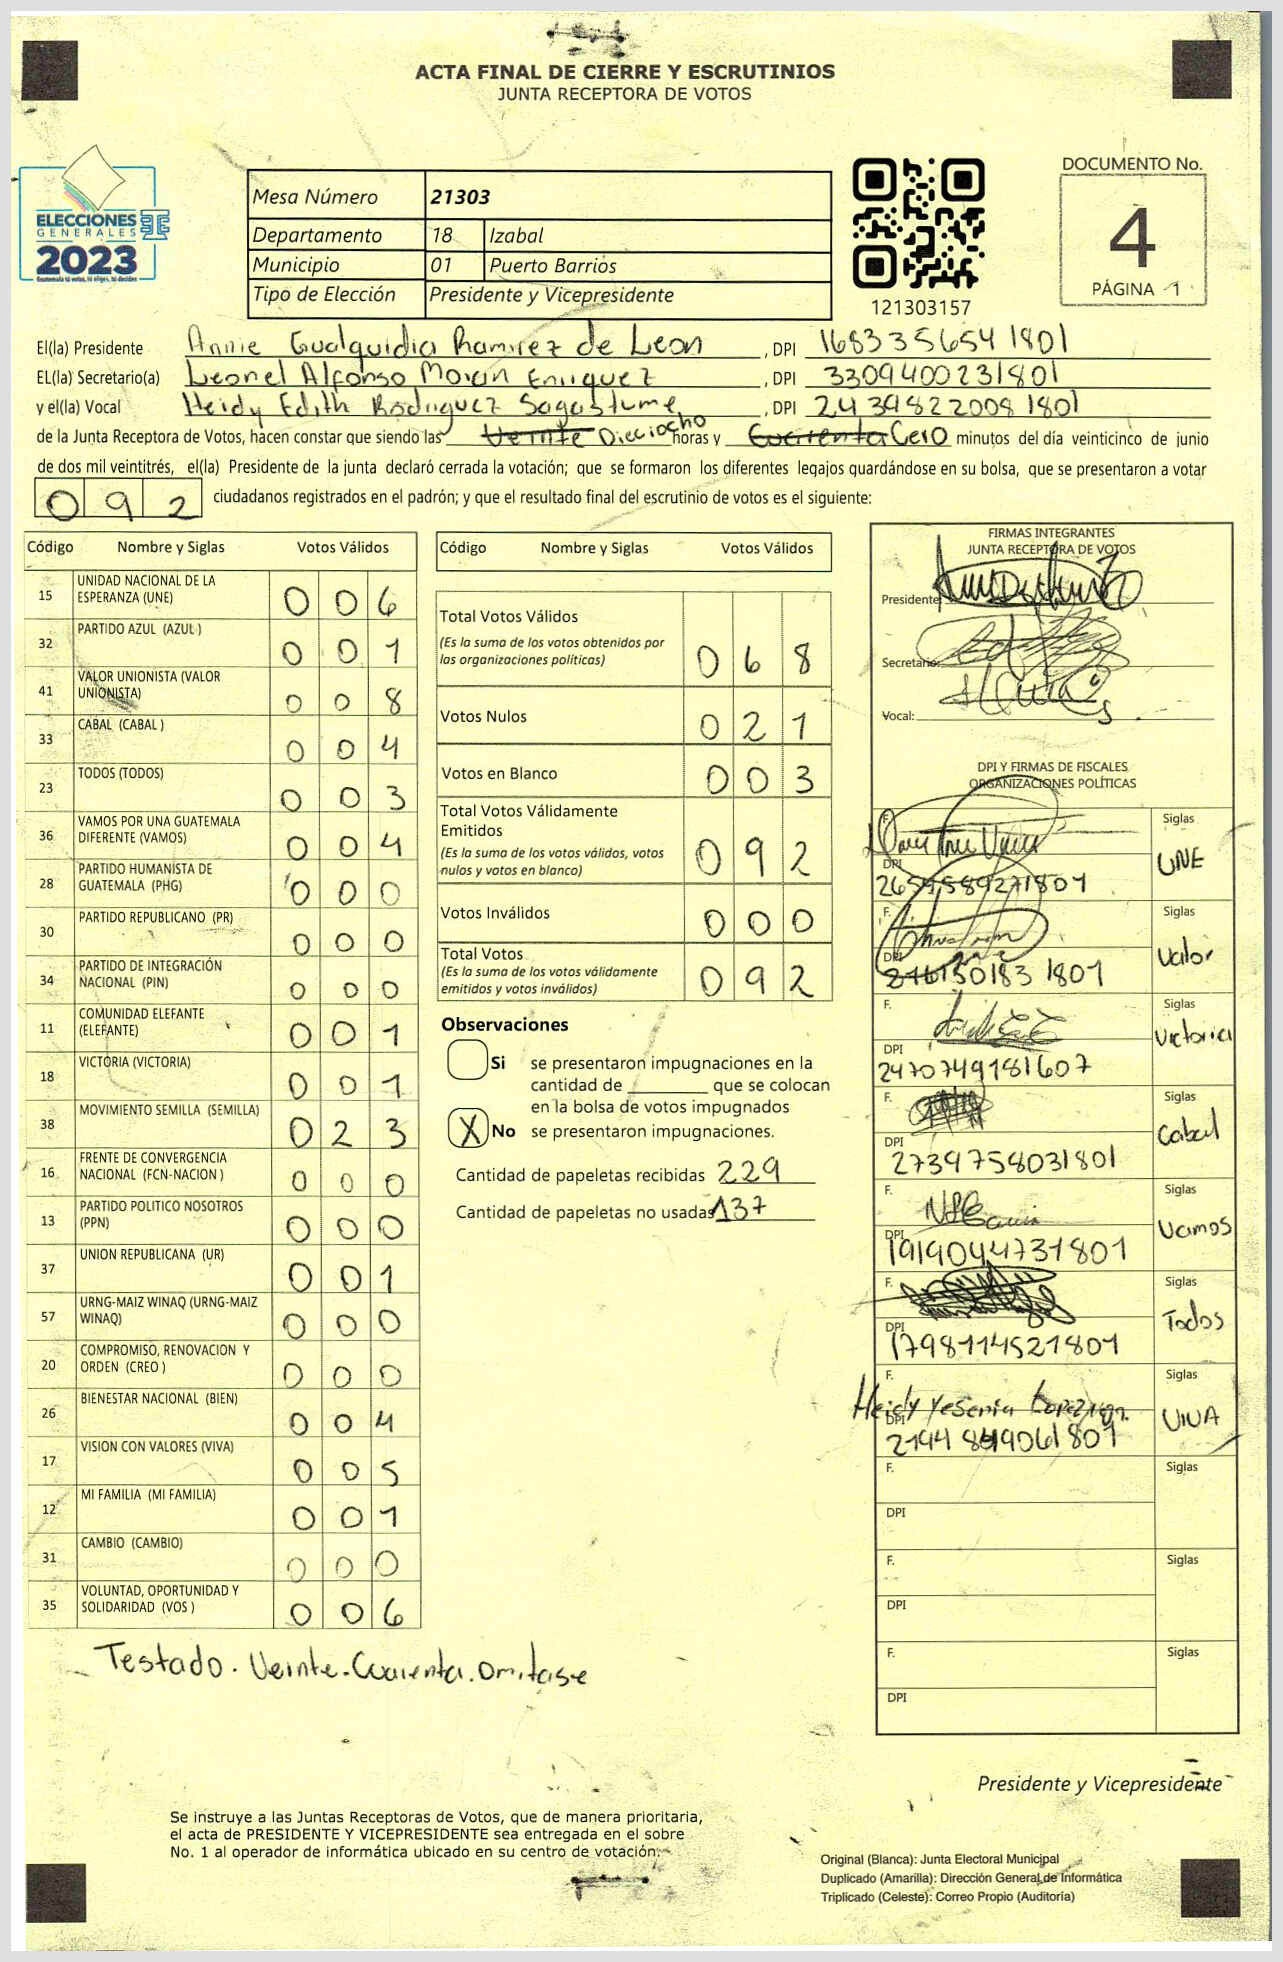 ACTA FINAL DE CIERRE Y ESCRUTINIOS
JUNTA RECEPTORA DE VOTOS
ELECCIONES
GENERALES
2023
Guatemala tú votas, tú eliges, tú decides
Mesa Número 21303
Departamento 18 Izabal
Municipio 01 Puerto Barrios
Tipo de Elección Presidente y Vicepresidente
121303157
DOCUMENTO No.
4
PÁGINA 1
El(la) Presidente Annie Gualquidia Ramirez de Leon , DPI 1683356541801
EL(la) Secretario(a) Leonel Alfonso Moran Enriquez , DPI 3309400231801
y el(la) Vocal Heidy Edith Rodriguez Sagastume , DPI 2439822081801
de la Junta Receptora de Votos, hacen constar que siendo las Veinte Dieciocho horas y Cuarenta Cero minutos del día veinticinco de junio
de dos mil veintitrés, el(la) Presidente de la junta declaró cerrada la votación; que se formaron los diferentes legajos guardándose en su bolsa, que se presentaron a votar
092 ciudadanos registrados en el padrón; y que el resultado final del escrutinio de votos es el siguiente:
Código Nombre y Siglas Votos Válidos
15 UNIDAD NACIONAL DE LA ESPERANZA (UNE) 0 0 6
32 PARTIDO AZUL (AZUL ) 0 0 1
41 VALOR UNIONISTA (VALOR UNIONISTA) 0 0 8
33 CABAL (CABAL ) 0 0 4
23 TODOS (TODOS) 0 0 3
36 VAMOS POR UNA GUATEMALA DIFERENTE (VAMOS) 0 0 4
28 PARTIDO HUMANISTA DE GUATEMALA (PHG) 0 0 0
30 PARTIDO REPUBLICANO (PR) 0 0 0
34 PARTIDO DE INTEGRACIÓN NACIONAL (PIN) 0 0 0
11 COMUNIDAD ELEFANTE (ELEFANTE) 0 0 1
18 VICTORIA (VICTORIA) 0 0 1
38 MOVIMIENTO SEMILLA (SEMILLA) 0 2 3
16 FRENTE DE CONVERGENCIA NACIONAL (FCN-NACION ) 0 0 0
13 PARTIDO POLITICO NOSOTROS (PPN) 0 0 0
37 UNION REPUBLICANA (UR) 0 0 1
57 URNG-MAIZ WINAQ (URNG-MAIZ WINAQ) 0 0 0
20 COMPROMISO, RENOVACION Y ORDEN (CREO ) 0 0 0
26 BIENESTAR NACIONAL (BIEN) 0 0 4
17 VISION CON VALORES (VIVA) 0 0 5
12 MI FAMILIA (MI FAMILIA) 0 0 1
31 CAMBIO (CAMBIO) 0 0 0
35 VOLUNTAD, OPORTUNIDAD Y SOLIDARIDAD (VOS ) 0 0 6
Testado. Veinte. Cuarenta. Omitase
Código Nombre y Siglas Votos Válidos
Total Votos Válidos
(Es la suma de los votos obtenidos por
las organizaciones políticas) 0 6 8
Votos Nulos 0 2 1
Votos en Blanco 0 0 3
Total Votos Válidamente
Emitidos
(Es la suma de los votos válidos, votos
nulos y votos en blanco) 0 9 2
Votos Inválidos 0 0 0
Total Votos
(Es la suma de los votos válidamente
emitidos y votos inválidos) 0 9 2
Observaciones
Si se presentaron impugnaciones en la
cantidad de que se colocan
en la bolsa de votos impugnados
X No se presentaron impugnaciones.
Cantidad de papeletas recibidas 229
Cantidad de papeletas no usadas 137
FIRMAS INTEGRANTES
JUNTA RECEPTORA DE VOTOS
Presidente:
Secretario:
Vocal:
DPI Y FIRMAS DE FISCALES
ORGANIZACIONES POLÍTICAS
F. Siglas
UNE
DPI
F. Siglas
Valor
DPI
F. Siglas
Victoria
DPI
2470749181607
F. Siglas
Cabal
DPI
2739758031801
F. Siglas
Vamos
DPI
1919044731801
F. Siglas
Todos
DPI
1798114521801
F. Siglas
Heidy Yesenia Lopez
VIVA
DPI
F. Siglas
DPI
F. Siglas
DPI
F. Siglas
DPI
Presidente y Vicepresidente
Se instruye a las Juntas Receptoras de Votos, que de manera prioritaria,
el acta de PRESIDENTE Y VICEPRESIDENTE sea entregada en el sobre
No. 1 al operador de informática ubicado en su centro de votación.
Original (Blanca): Junta Electoral Municipal
Duplicado (Amarilla): Dirección General de Informática
Triplicado (Celeste): Correo Propio (Auditoría)